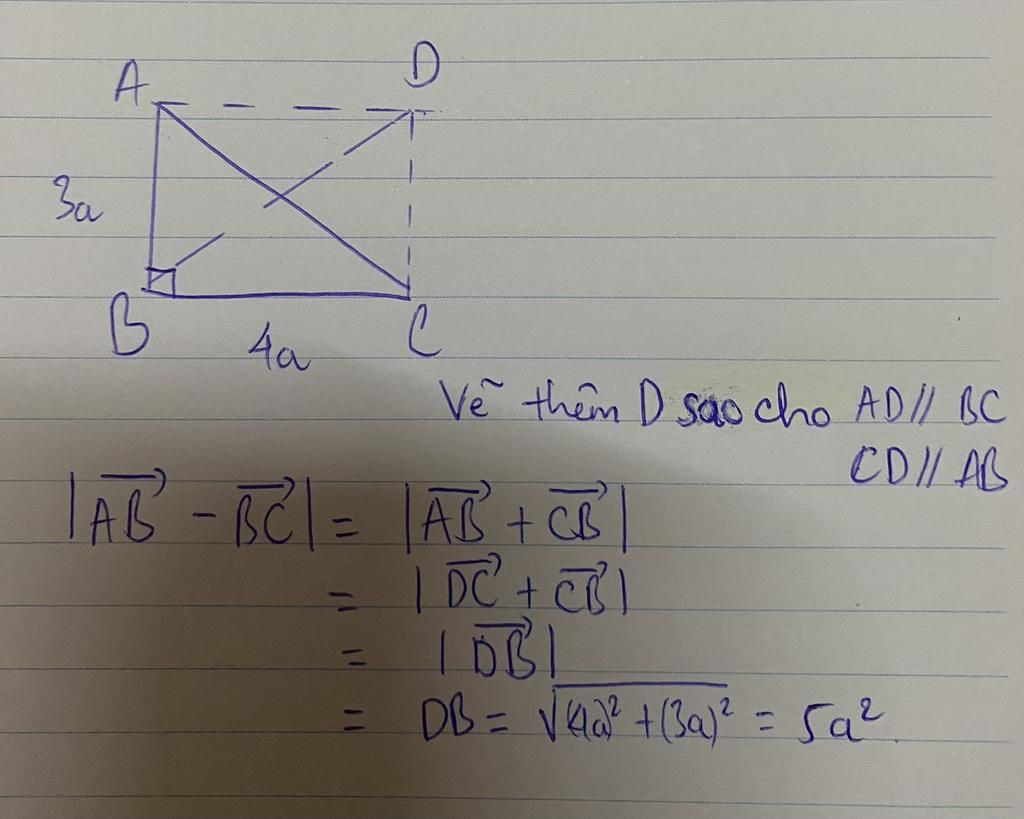 A D
3a
B C
4a
Vẽ thêm D sao cho AD // BC
CD // AB
|\overrightarrow{AB} - \overrightarrow{BC}| = |\overrightarrow{AB} + \overrightarrow{CB}|
= |\overrightarrow{DC} + \overrightarrow{CB}|
= |\overrightarrow{DB}|
= DB = √((4a)² + (3a)²) = 5a².